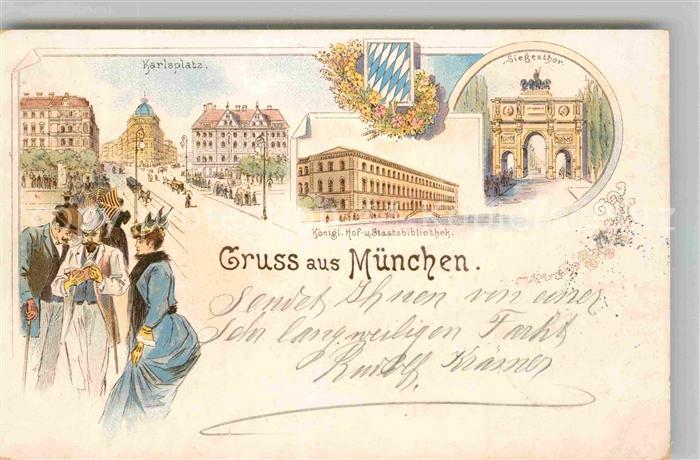 Karlsplatz.
Siegesthor.
Königl. Hof- u. Staatsbibliothek.
Gruss aus München.
Sendet Ihnen von einer
sehr langweiligen Fahrt
Rudolf Krämer